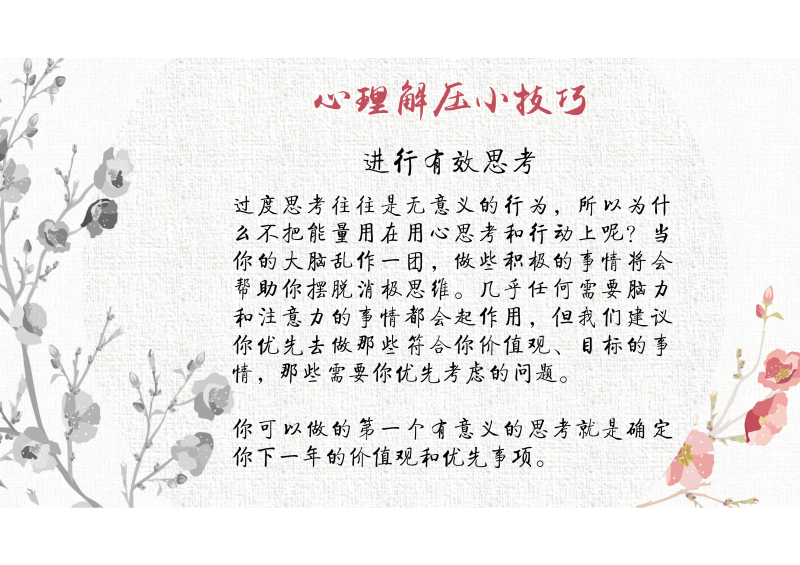 心理解压小技巧
进行有效思考
过度思考往往是无意义的行为，所以为什
么不把能量用在用心思考和行动上呢？当
你的大脑乱作一团，做些积极的事情将会
帮助你摆脱消极思维。几乎任何需要脑力
和注意力的事情都会起作用，但我们建议
你优先去做那些符合你价值观、目标的事
情，那些需要你优先考虑的问题。
你可以做的第一个有意义的思考就是确定
你下一年的价值观和优先事项。